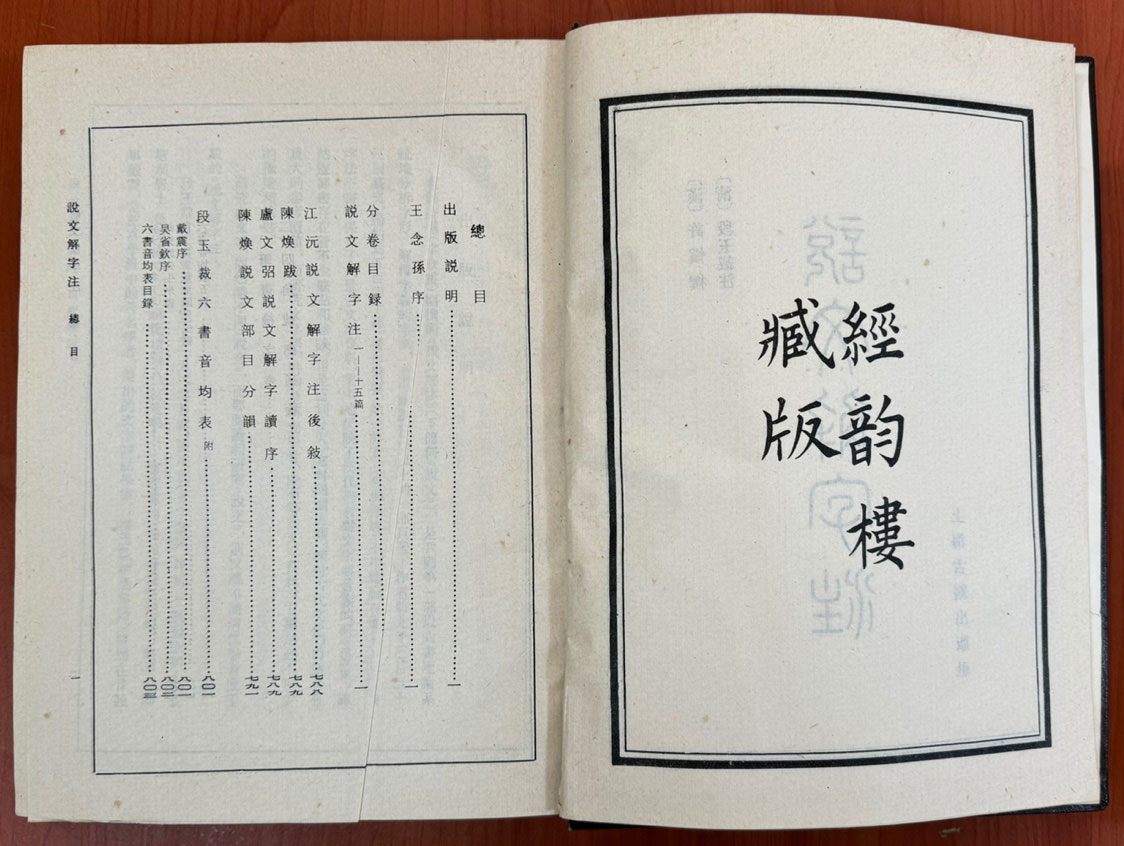 經韵樓
臧版
總目
出版説明……一
王念孫序……一
分卷目録……一
説文解字注 一——十五篇……一
江沅説文解字注後敍……七八八
陳煥跋……七八九
盧文弨説文解字讀序……七八九
陳煥説文部目分韻……七九一
段玉裁六書音均表 附……八〇一
戴震序……八〇一
吴省欽序……八〇二
六書音均表目録……八〇三
説文解字注 總目 一